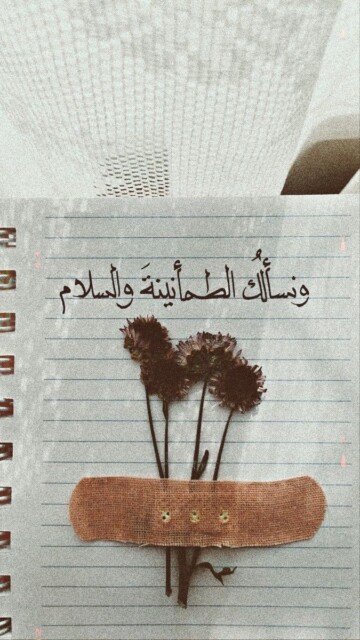 ونسأَلُك الطمأنينةَ والسلام